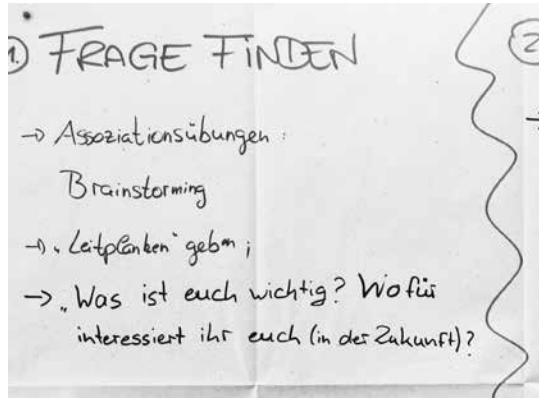 1.) FRAGE FINDEN
2
→ Assoziationsübungen:
Brainstorming
→ „Leitplanken" geben;
→ „Was ist euch wichtig? Wofür
interessiert ihr euch (in der Zukunft)?